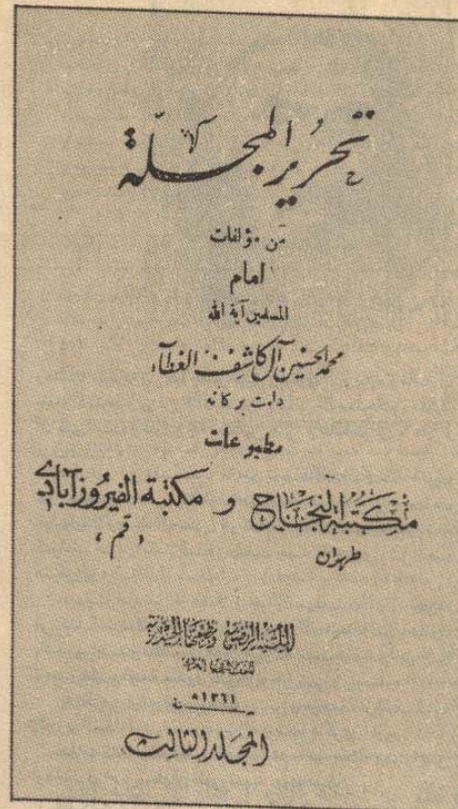 تحرير المجلة
من مؤلفات
امام
المسلمين آية الله
محمد الحسين آل كاشف الغطاء
دامت بركاته
مطبوعات
مكتبة النجاح و مكتبة الفيروزآبادي
طهران «قم»
المكتبة المرتضوية ومطبعتها الحيدرية
١٣٦١ ه
المجلد الثالث